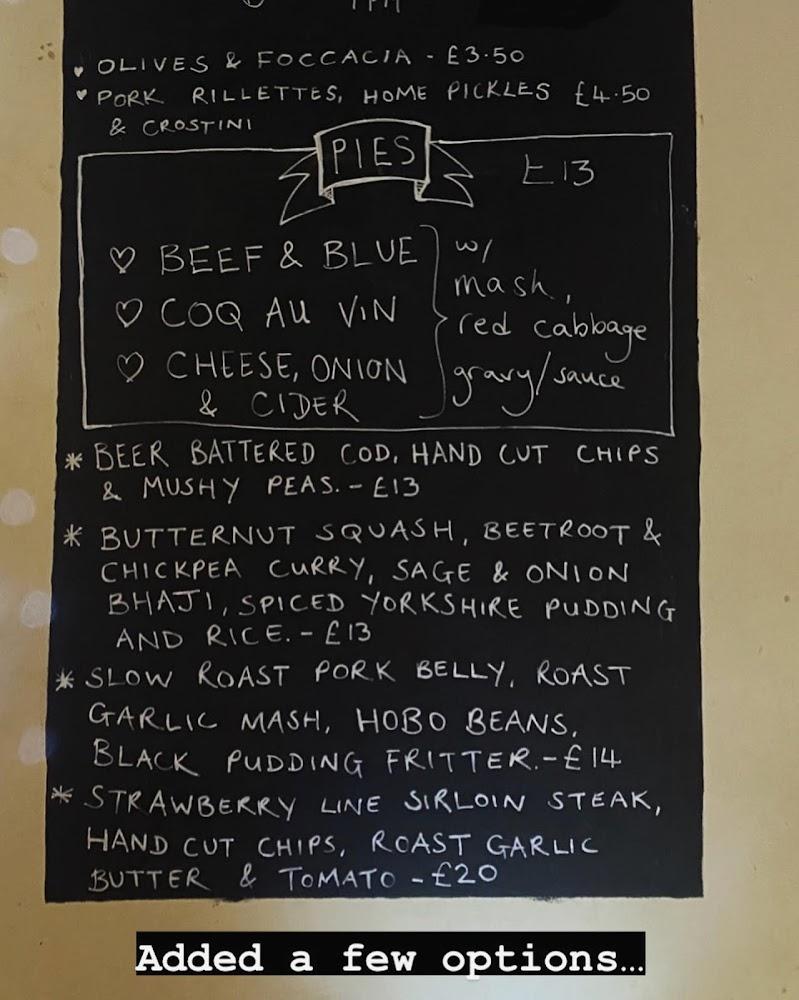 OLIVES & FOCCACIA - £3.50
PORK RILLETTES, HOME PICKLES £4.50
& CROSTINI
PIES £13
BEEF & BLUE
COQ AU VIN
CHEESE, ONION
& CIDER
w/
mash,
red cabbage
gravy/sauce
* BEER BATTERED COD, HAND CUT CHIPS
& MUSHY PEAS. - £13
* BUTTERNUT SQUASH, BEETROOT &
CHICKPEA CURRY, SAGE & ONION
BHAJI, SPICED YORKSHIRE PUDDING
AND RICE. - £13
* SLOW ROAST PORK BELLY, ROAST
GARLIC MASH, HOBO BEANS,
BLACK PUDDING FRITTER. - £14
* STRAWBERRY LINE SIRLOIN STEAK,
HAND CUT CHIPS, ROAST GARLIC
BUTTER & TOMATO - £20
Added a few options…